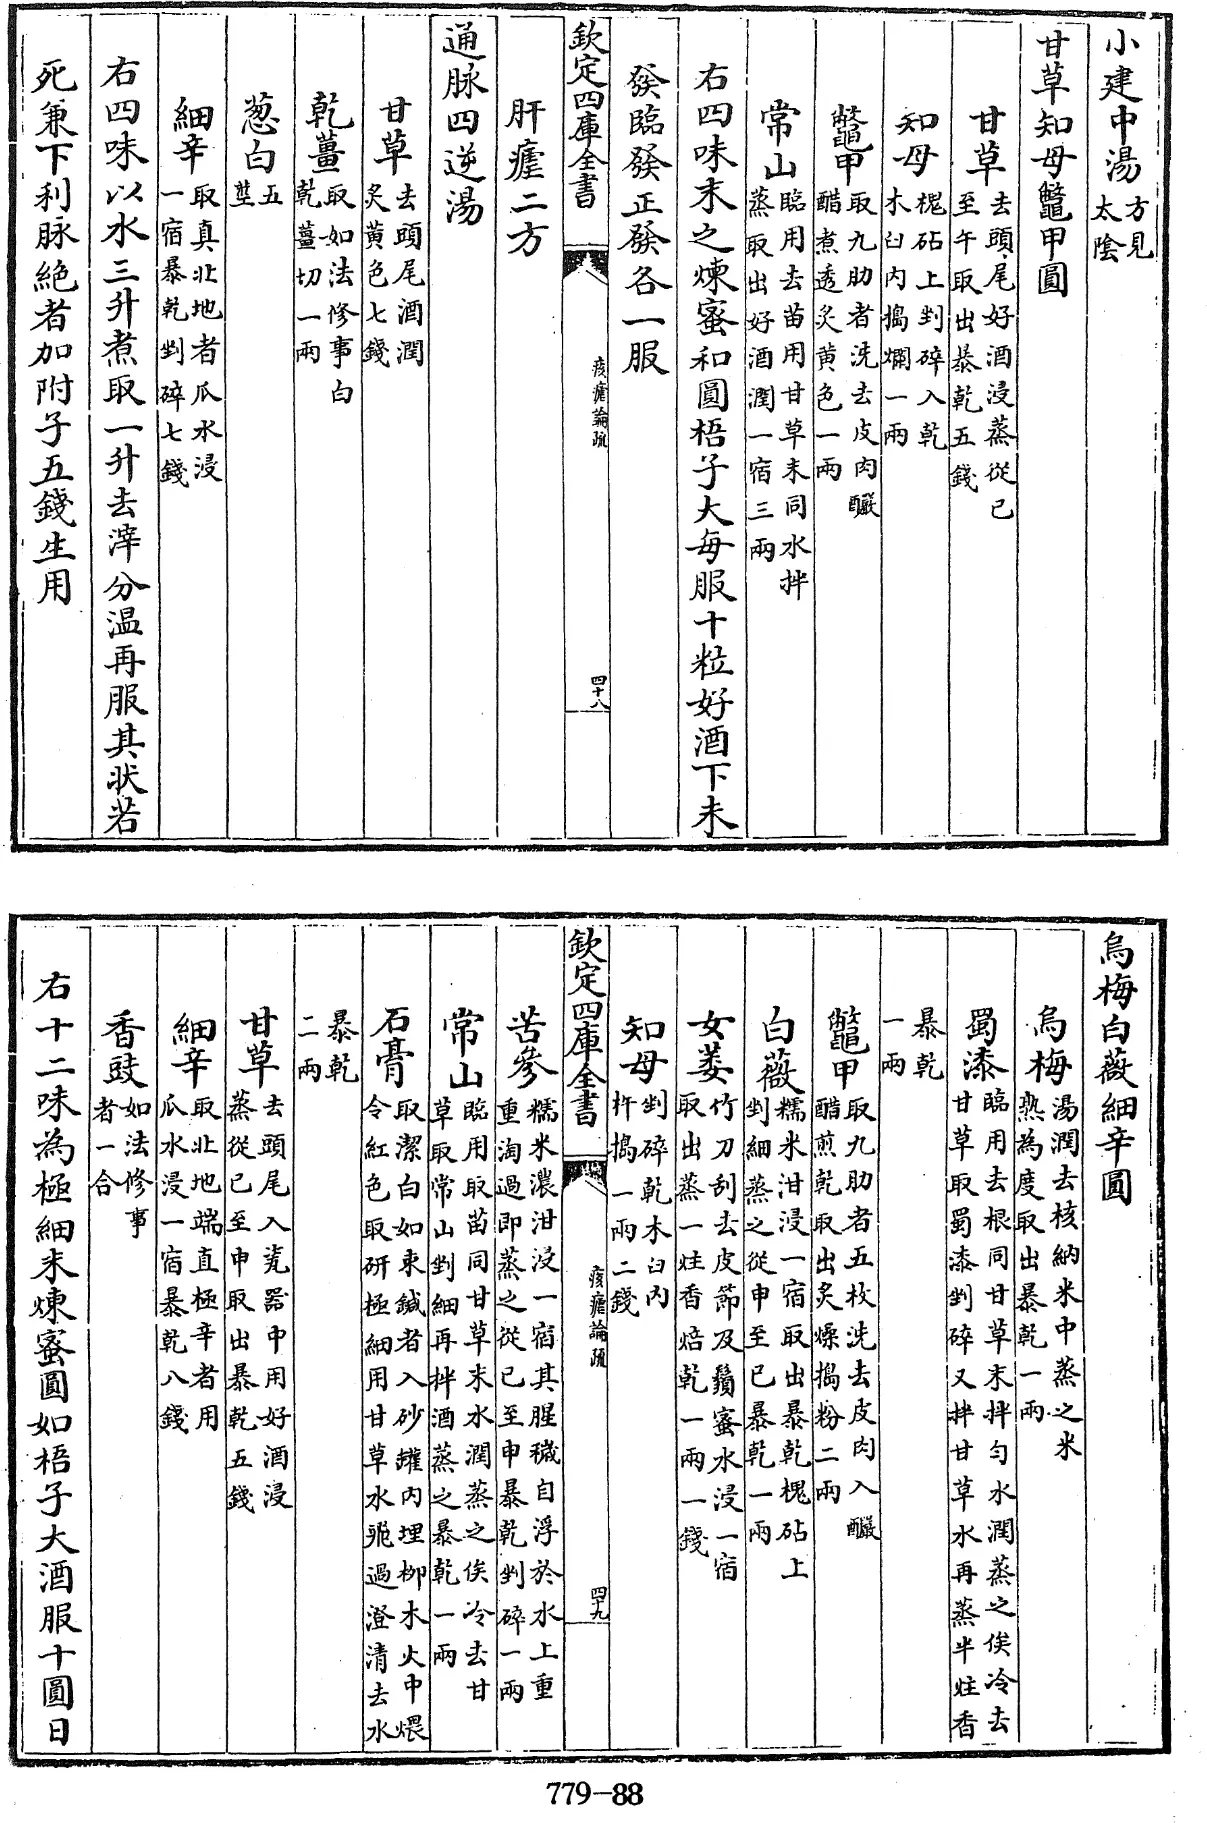 小建中湯方見太陰
甘草知母鼈甲圓
甘草去頭尾好酒浸蒸從已至午取出暴乾五錢
知母槐砧上剉碎入乾木臼内搗爛一兩
鼈甲取九肋者洗去皮肉釅醋煮透炙黄色一兩
常山臨用去苗用甘草末同水拌蒸取出好酒潤一宿三兩
右四味末之煉蜜和圓梧子大每服十粒好酒下未
發臨發正發各一服
欽定四庫全書
痎瘧論疏
四十八
肝瘧二方
通脉四逆湯
甘草去頭尾酒潤炙黄色七錢
乾薑取如法修事白乾薑切一兩
葱白五莖
細辛取真北地者瓜水浸一宿暴乾剉碎七錢
右四味以水三升煮取一升去滓分温再服其狀若
死兼下利脉絶者加附子五錢生用
烏梅白薇細辛圓
烏梅湯潤去核納米中蒸之米熟為度取出暴乾一兩
蜀漆臨用去根同甘草末拌勻水潤蒸之俟冷去甘草取蜀漆剉碎又拌甘草水再蒸半炷香
暴乾一兩
鼈甲取九肋者五枚洗去皮肉入釅醋煎乾取出炙燥搗粉二兩
白薇糯米泔浸一宿取出暴乾槐砧上剉細蒸之從申至已暴乾一兩
女萎竹刀刮去皮節及鬚蜜水浸一宿取出蒸一炷香焙乾一兩一錢
知母剉碎乾木臼内杵搗一兩二錢
欽定四庫全書
痎瘧論疏
四十九
苦參糯米濃泔浸一宿其腥穢自浮於水上重重淘過即蒸之從已至申暴乾剉碎一兩
常山臨用取苗同甘草末水潤蒸之俟冷去甘草取常山剉細再拌酒蒸之暴乾一兩
石膏取潔白如束鍼者入砂罐内埋柳木火中煨令紅色取研極細用甘草水飛過澄清去水
暴乾二兩
甘草去頭尾入瓷器中用好酒浸蒸從已至申取出暴乾五錢
細辛取北地端直極辛者用瓜水浸一宿暴乾八錢
香豉如法修事者一合
右十二味為極細末煉蜜圓如梧子大酒服十圓日
779-88